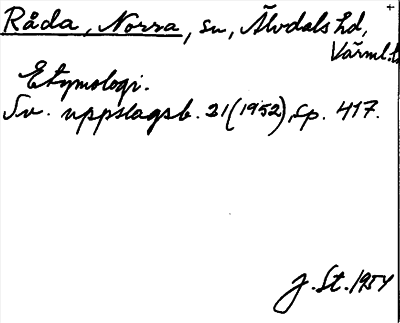 Råda, Norra, sn, Älvdals hd,
Värml. l.
Etymologi.
Sv. uppslagsb. 21(1952), sp. 417.
J. St. 1954